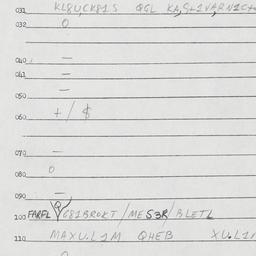 031 KL8U,CK81S QGL KA,S+1VA,RN1C+
032 O
040 —
041 —
050 —
060 + / $
070 —
080 O
090 —
100 FARFL Q C81BROKT / ME S3R / BLETL
110 MAXU.L1M QHEB XU.L1